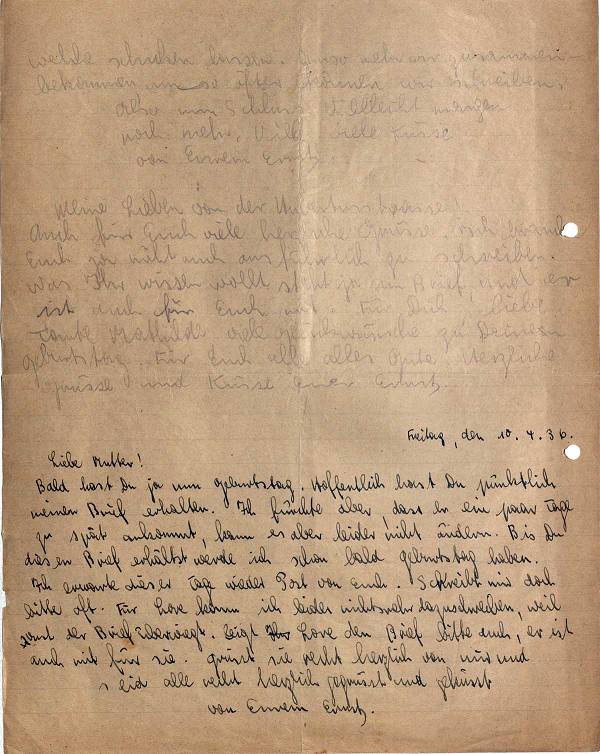 welche schicken lassen. Umso mehr wir zusammen-
bekommen um so öfter können wir schreiben.
Also nun Schluss. Vielleicht morgen
noch mehr. Viele viele Küsse
von Eurem Ernst.
Meine Lieben von der
Auch für Euch viele herzliche Grüsse. Ich brauch
Euch ja nicht auch ausführlich zu schreiben.
Was Ihr wissen wollt steht ja im Brief, und er
ist doch für Euch mit. Für Dich liebe
Tante Mathilde viele Glückwünsche zu Deinem
Geburtstag. Für Euch alle alles Gute! Herzliche
Grüsse und Küsse Euer Ernst.
Freitag, den 10.4.36.
Liebe Mutter!
Bald hast Du ja nun Geburtstag. Hoffentlich hast Du pünktlich
meinen Brief erhalten. Ich fürchte aber, dass er ein paar Tage
zu spät ankommt, kann es aber leider nicht ändern. Bis Du
diesen Brief erhältst werde ich schon bald Geburtstag haben.
Ich erwarte dieser Tage wieder Post von euch. Schreibt mir doch
bitte oft. Für Lore kann ich leider nichts mehr dazuschreiben, weil
sonst der Brief überwiegt. Zeigt Lore den Brief bitte auch, er ist
auch mit für sie. Grüsst sie recht herzlich von mir und
seid alle recht herzlich gegrüsst und geküsst
von Eurem Ernst.